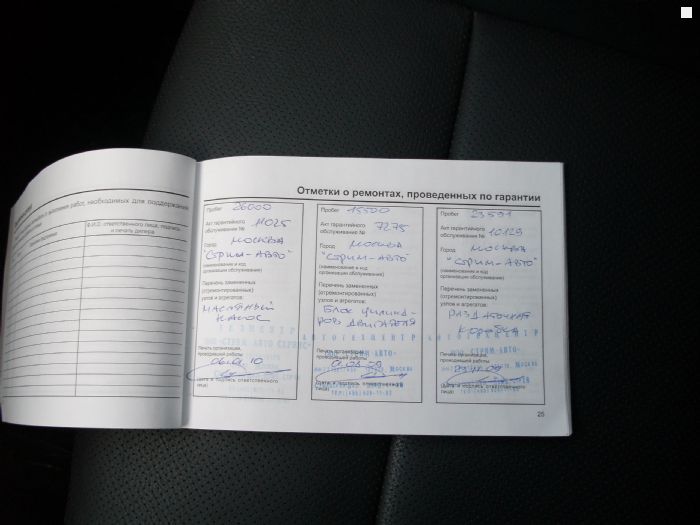 необходимых для поддержания
Ф.И.О. ответственного лица, подпись
и печать дилера
Отметки о ремонтах, проведенных по гарантии
Пробег 26000
Акт гарантийного
обслуживания № 11025
Город Москва
"Стрим-Авто"
(наименование и код
организации обслуживания)
Перечень замененных
(отремонтированных)
узлов и агрегатов:
масляный
насос
Печать организации,
проводившей работы
(дата и подпись ответственного
лица)
Пробег 15500
Акт гарантийного
обслуживания № 7275
Город Москва
"Стрим-Авто"
(наименование и код
организации обслуживания)
Перечень замененных
(отремонтированных)
узлов и агрегатов:
Блок цилинд-
ров двигателя
АВТОТЕХЦЕНТР
Печать организации,
проводившей работы
(дата и подпись ответственного
лица)
Пробег 23591
Акт гарантийного
обслуживания № 10129
Город Москва
"Стрим-Авто"
(наименование и код
организации обслуживания)
Перечень замененных
(отремонтированных)
узлов и агрегатов:
раздаточная
коробка
Печать организации,
проводившей работы
(дата и подпись ответственного
лица)
25